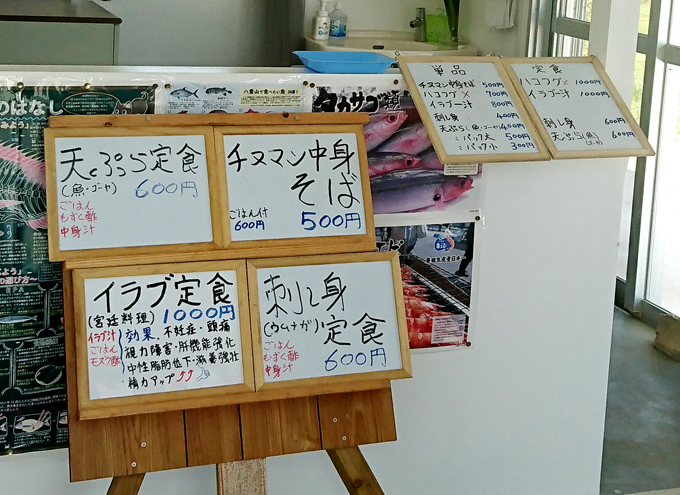 天ぷら定食
(魚・ゴーヤ) 600円
ごはん
もずく酢
中身汁
チヌマン中身
そば
ごはん付
600円
500円
イラブ定食
(宮廷料理) 1000円
イラブ汁
ごはん
モズク酢
効果 不妊症・頭痛
視力障害・肝機能強化
中性脂肪低下・滋養強壮
精力アップ↑↑
刺し身
定食
ごはん
もずく酢
中身汁
600円
単品
チヌマン中身そば 500円
ハコフグ× 700円
イラブー汁 800円
刺し身 400円
天ぷら(魚・ゴーヤ) 400円
〃 パック大 500円
〃 パック小 300円
定食
ハコフグ× 1000円
イラブー汁 1000円
刺し身 600円
天ぷら(魚) 600円
ゴーヤ
タカサゴ
のはなし